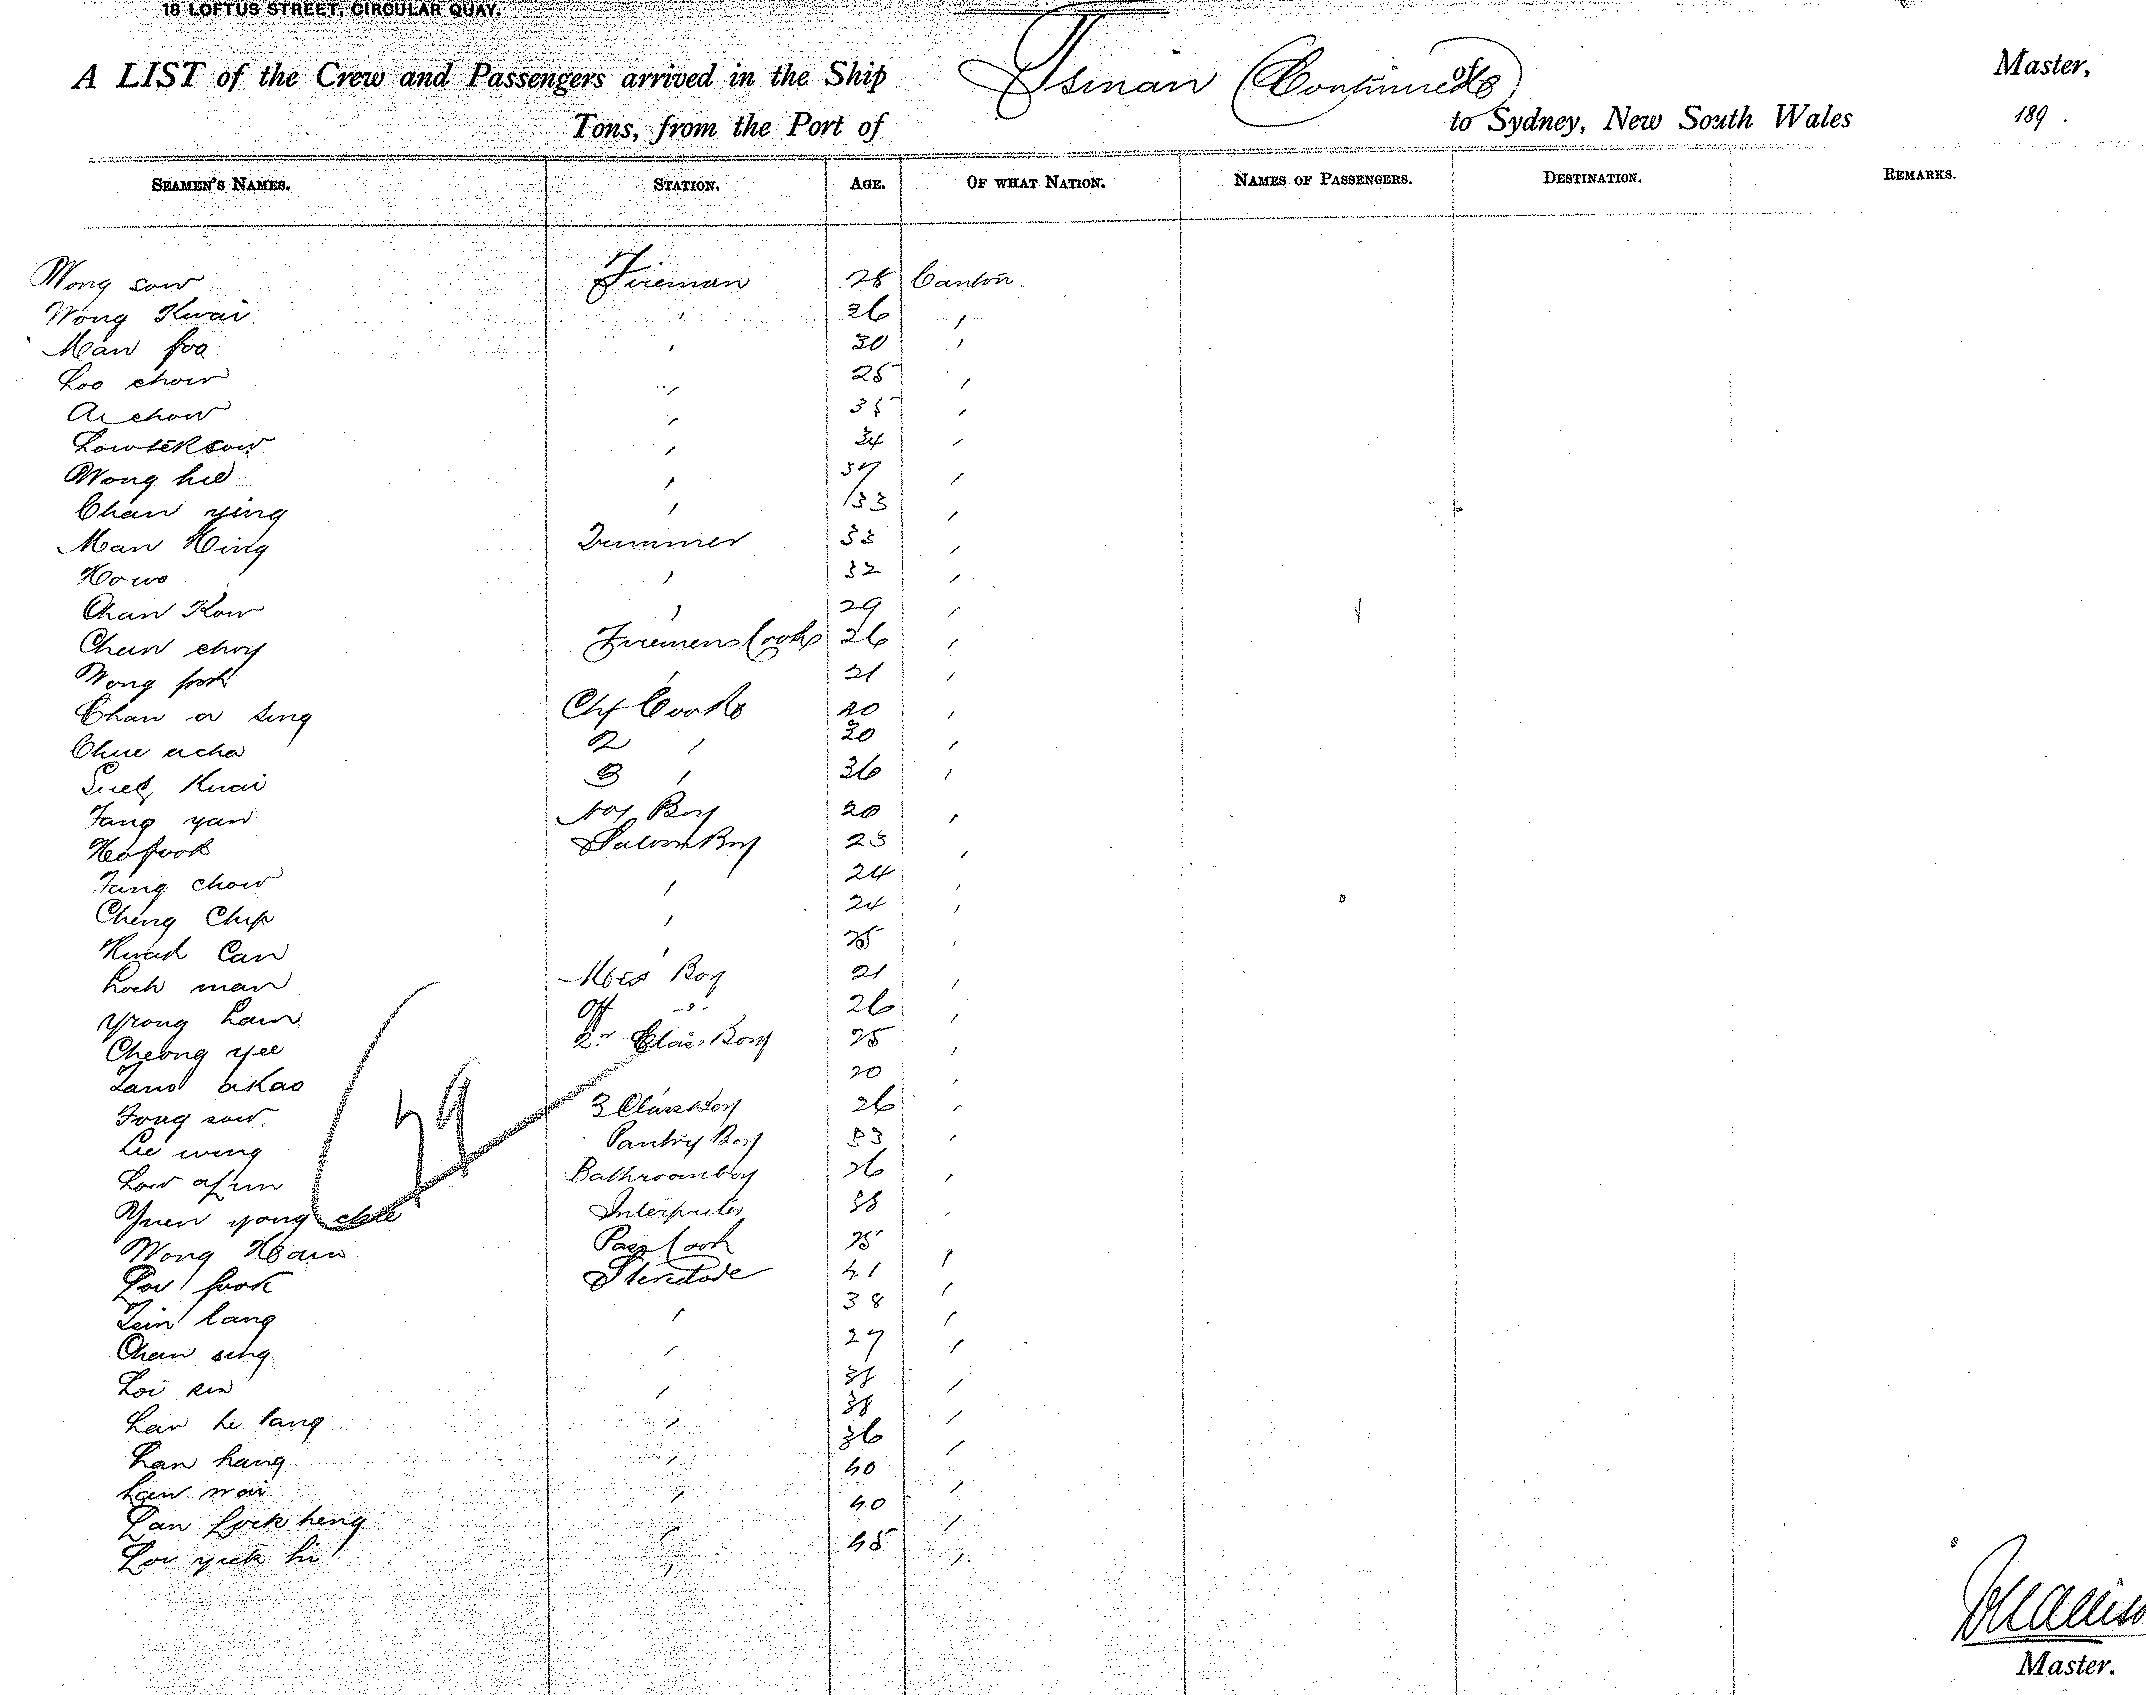 18 LOFTUS STREET, CIRCULAR QUAY.
A LIST of the Crew and Passengers arrived in the Ship Tsinan (Continued) of Master,
Tons, from the Port of to Sydney, New South Wales 189 .
SEAMEN'S NAMES. STATION. AGE. OF WHAT NATION. NAMES OF PASSENGERS. DESTINATION. REMARKS.
Wong sow Fireman 28 Canton
Wong Kwai " 26 "
Man foo " 30 "
Loo chow " 25 "
Ar chow " 35 "
Low sek sow " 34 "
Wong hee " 37 "
Chan ying " 33 "
Man King Trimmer 33 "
Ho wo " 32 "
Chan Kow " 29 "
Chan choy Firemens Cook 26 "
Wong fook " 21 "
Chan a sing Chf Cook 40 "
Chue acho 2 " 30 "
Kwai 3 " 36 "
Fang yan Boy 20 "
Ho fook Saloon Boy 23 "
Fung chow " 24 "
Cheng Chip " 24 "
Kwah Can " 25 "
Loch man Mess Boy 21 "
Yrong Lam Off " 26 "
Cheong yee 2nd Class Boy 25 "
akao 20 "
Fong sow 3 Class Boy 26 "
Lee wing Pantry Boy 33 "
Low afun Bathroom boy 26 "
Yuen yong Interpreter 38 "
Wong Ham Pass Cook 25 "
Loi fook Stevedore 41 "
lang " 38 "
Chan sing " 27 "
Loi " "
Lan he tang " 38 "
Lan hang " 36 "
Lan wai " 40 "
Lan fook heng " 40 "
Loi yick hi " 45 "
79
Master.